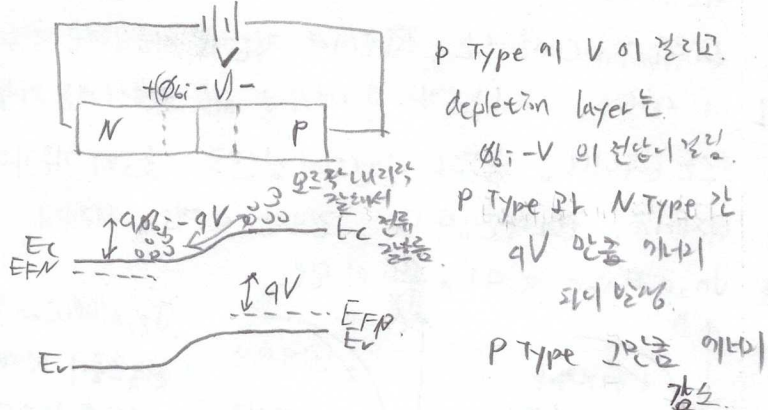 V
+(φbi - V) -
N
P
오르락내리락
잘돼서
전류
잘흐름
qφbi - qV
Ec
EFN
Ec
qV
EFP
Ev
Ev
P Type 에 V 이 걸리고
depletion layer는
φbi - V 의 전압이 걸림.
P Type 과 N Type 간
qV 만큼 에너지
차이 발생.
P Type 그만큼 에너지
감소.